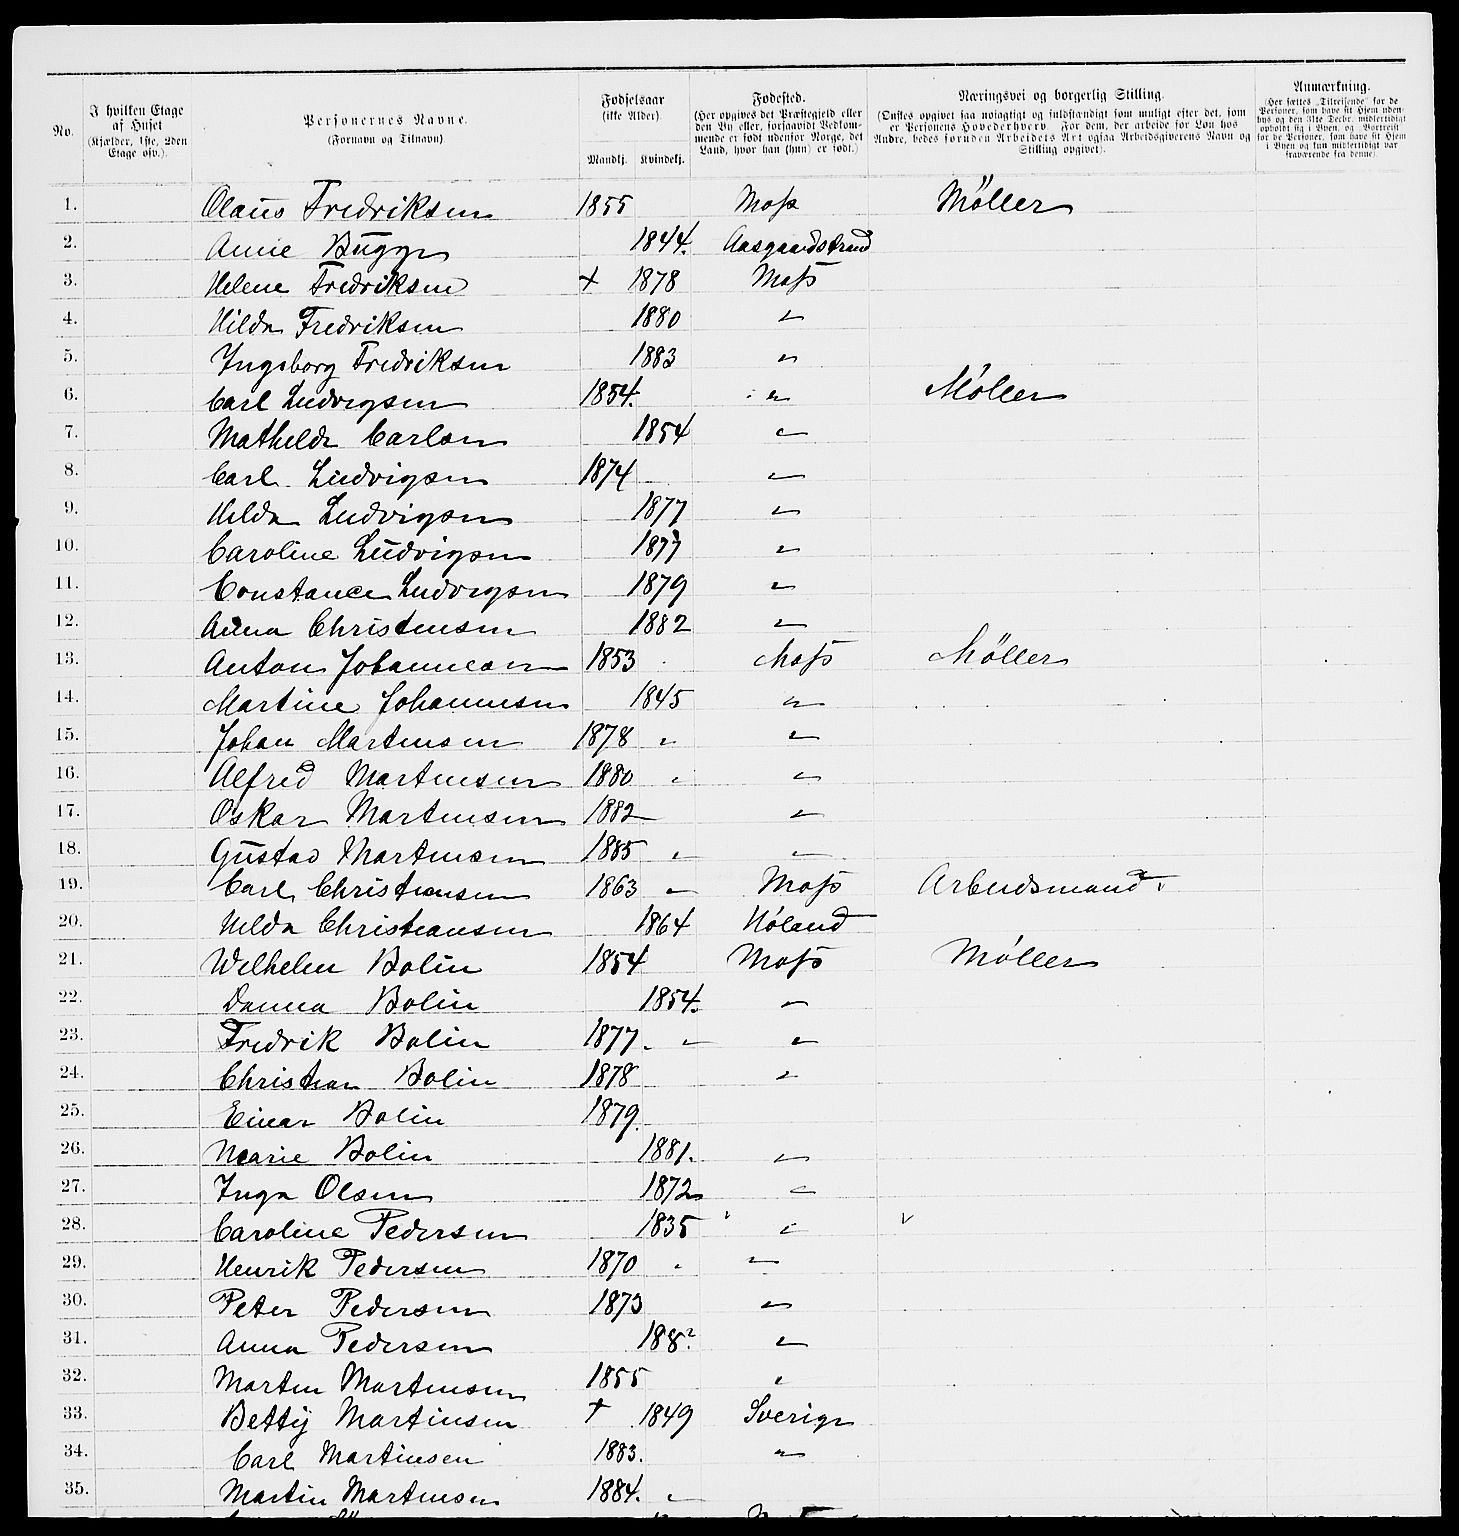 No.
I hvilken Etage
af Huset
(Kjælder, 1ste, 2den
Etage osv.).
Personernes Navne.
(Fornavn og Tilnavn).
Fødselsaar
(ikke Alder).
Mandkj. Kvindekj.
Fødested.
(Her opgives det Præstegjeld eller
den By eller, forsaavidt Vedkom-
mende er født udenfor Norge, det
Land, hvor han (hun) er født.)
Næringsvei og borgerlig Stilling.
(Ønskes opgivet saa nøiagtigt og fuldstændigt som muligt efter det, som
er Personens Hovederhverv. For dem, der arbeide for Løn hos
Andre, bedes foruden Arbeidets Art ogsaa Arbeidsgiverens Navn og
Stilling opgivet).
Anmærkning.
(Her sættes „Tilreisende" for de
Personer, som have sit Hjem uden-
bys og den 31te Decbr. midlertidigt
opholdt sig i Byen, og „Bortreist"
for de Personer, som have sit Hjem
i Byen og kun midlertidigt var
fraværende fra denne).
1. Olaus Fredriksen 1855 Moss Møller
2. Anne Bugge 1844. Aasgaardstrand
3. Helene Fredriksen + 1878 Moss
4. Hilda Fredriksen 1880 "
5. Ingeborg Fredriksen 1883 "
6. Carl Ludvigsen 1854. " Møller
7. Mathilde Carlsen 1854 "
8. Carl Ludvigsen 1874 "
9. Hilda Ludvigsen 1877 "
10. Caroline Ludvigsen 1877 "
11. Constance Ludvigsen 1879 "
12. Anna Christensen 1882 "
13. Anton Johannesen 1853 Moss Møller
14. Martine Johannesen 1845 "
15. Johan Martensen 1878 " "
16. Alfred Martensen 1880 " "
17. Oskar Martensen 1882 "
18. Gustav Martensen 1885 " "
19. Carl Christiansen 1863 " Moss Arbeidsmand
20. Hilda Christiansen 1864 Høland
21. Wilhelm Bolin 1854 Moss Møller
22. Danna Bolin 1854. "
23. Fredrik Bolin 1877. " "
24. Christian Bolin 1878 "
25. Einar Bolin 1879.
26. Marie Bolin 1881. "
27. Inga Olsen 1872 "
28. Caroline Pedersen 1835 "
29. Henrik Pedersen 1870 " "
30. Peter Pedersen 1873 "
31. Anna Pedersen 188? "
32. Martin Martinsen 1855 "
33. Betty Martinsen + 1849 Sverige
34. Carl Martinsen 1883. "
35. Martin Martinsen 1884. "